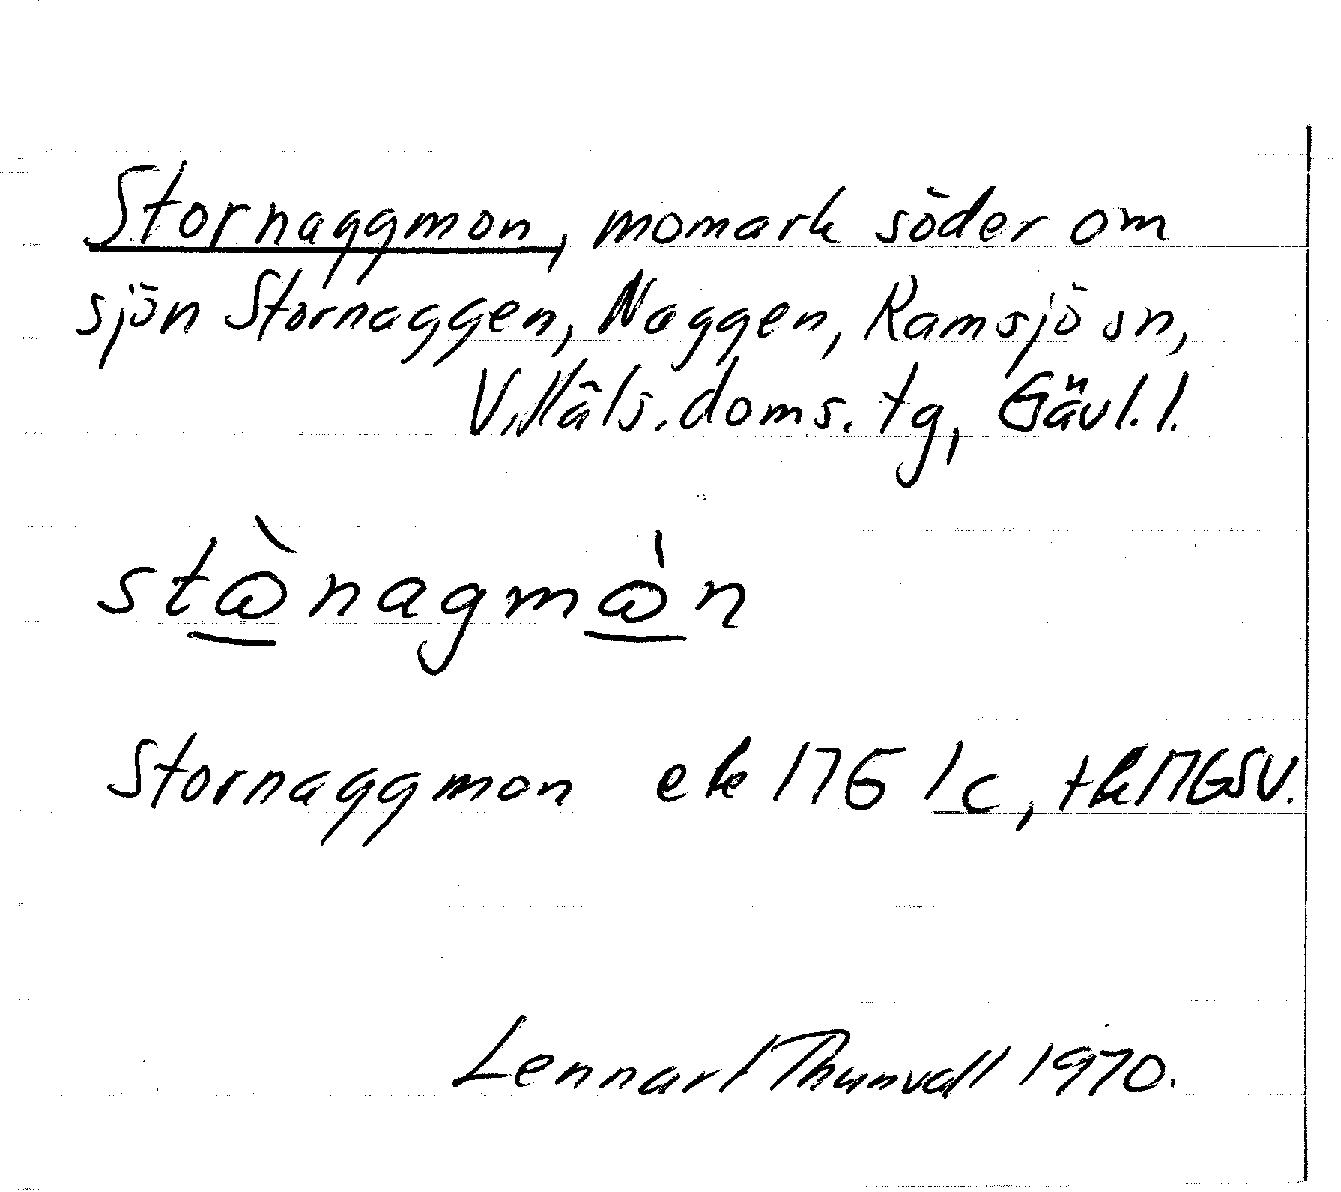 Stornaggmon, momark söder om
sjön Stornaggen, Naggen, Ramsjö sn,
V. Häls. doms. tg, Gävl. l.
Stornaggmon ek 17G 1c, tk 17GSV.
Lennart Thunvall 1970.